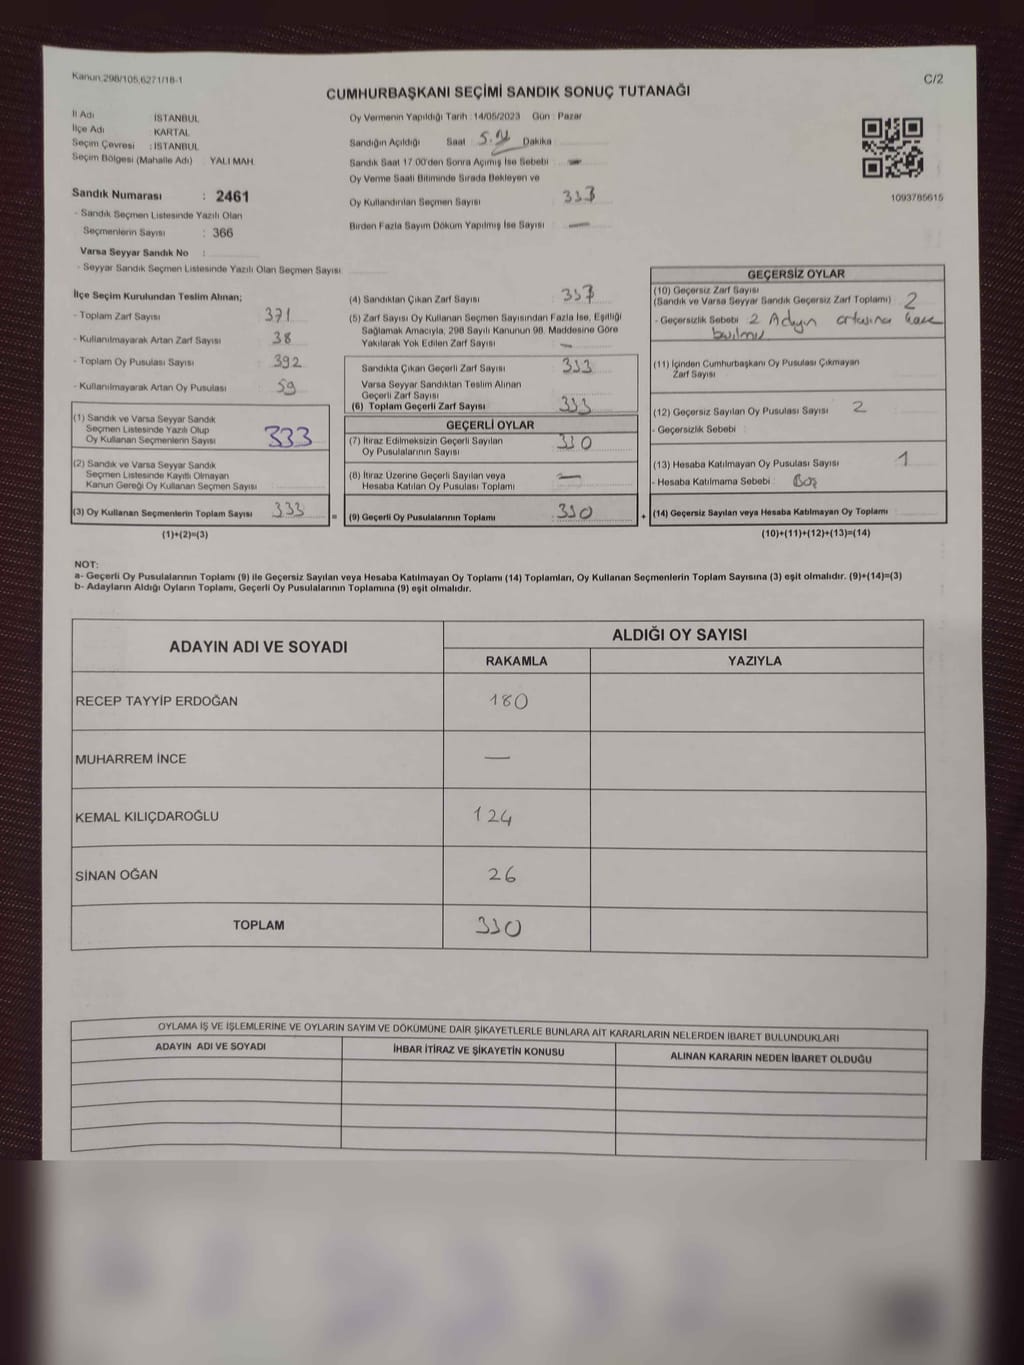 Kanun,298/105,6271/18-1
C/2
CUMHURBAŞKANI SEÇİMİ SANDIK SONUÇ TUTANAĞI
İl Adı İSTANBUL
İlçe Adı KARTAL
Seçim Çevresi : İSTANBUL
Seçim Bölgesi (Mahalle Adı) YALI MAH.
Sandık Numarası : 2461
- Sandık Seçmen Listesinde Yazılı Olan
Seçmenlerin Sayısı : 366
Varsa Seyyar Sandık No :
- Seyyar Sandık Seçmen Listesinde Yazılı Olan Seçmen Sayısı
Oy Vermenin Yapıldığı Tarih :14/05/2023 Gün : Pazar
Sandığın Açıldığı Saat Dakika
Sandık Saat 17.00'den Sonra Açımış İse Sebebi : —
Oy Verme Saati Bitiminde Sırada Bekleyen ve
Oy Kullandırılan Seçmen Sayısı 333
Birden Fazla Sayım Döküm Yapılmış İse Sayısı : —
1093785615
İlçe Seçim Kurulundan Teslim Alınan;
- Toplam Zarf Sayısı 371
- Kullanılmayarak Artan Zarf Sayısı 38
- Toplam Oy Pusulası Sayısı 392
- Kullanılmayarak Artan Oy Pusulası 59
(1) Sandık ve Varsa Seyyar Sandık
Seçmen Listesinde Yazılı Olup
Oy Kullanan Seçmenlerin Sayısı 333
(2) Sandık ve Varsa Seyyar Sandık
Seçmen Listesinde Kayıtlı Olmayan
Kanun Gereği Oy Kullanan Seçmen Sayısı
(3) Oy Kullanan Seçmenlerin Toplam Sayısı 333
(1)+(2)=(3)
=
(4) Sandıktan Çıkan Zarf Sayısı 333
(5) Zarf Sayısı Oy Kullanan Seçmen Sayısından Fazla İse, Eşitliği
Sağlamak Amacıyla, 298 Sayılı Kanunun 98. Maddesine Göre
Yakılarak Yok Edilen Zarf Sayısı —
Sandıkta Çıkan Geçerli Zarf Sayısı 333
Varsa Seyyar Sandıktan Teslim Alınan
Geçerli Zarf Sayısı
(6) Toplam Geçerli Zarf Sayısı 333
GEÇERLİ OYLAR
(7) İtiraz Edilmeksizin Geçerli Sayılan
Oy Pusulalarının Sayısı 330
(8) İtiraz Üzerine Geçerli Sayılan veya
Hesaba Katılan Oy Pusulası Toplamı —
(9) Geçerli Oy Pusulalarının Toplamı 330
+
GEÇERSİZ OYLAR
(10) Geçersiz Zarf Sayısı
(Sandık ve Varsa Seyyar Sandık Geçersiz Zarf Toplamı) 2
- Geçersizlik Sebebi 2 Adayın ortasına
(11) İçinden Cumhurbaşkanı Oy Pusulası Çıkmayan
Zarf Sayısı
(12) Geçersiz Sayılan Oy Pusulası Sayısı 2
- Geçersizlik Sebebi :
(13) Hesaba Katılmayan Oy Pusulası Sayısı 1
- Hesaba Katılmama Sebebi : Boş
(14) Geçersiz Sayılan veya Hesaba Katılmayan Oy Toplamı
(10)+(11)+(12)+(13)=(14)
NOT:
a- Geçerli Oy Pusulalarının Toplamı (9) ile Geçersiz Sayılan veya Hesaba Katılmayan Oy Toplamı (14) Toplamları, Oy Kullanan Seçmenlerin Toplam Sayısına (3) eşit olmalıdır. (9)+(14)=(3)
b- Adayların Aldığı Oyların Toplamı, Geçerli Oy Pusulalarının Toplamına (9) eşit olmalıdır.
ADAYIN ADI VE SOYADI ALDIĞI OY SAYISI
RAKAMLA YAZIYLA
RECEP TAYYİP ERDOĞAN 180
MUHARREM İNCE —
KEMAL KILIÇDAROĞLU 124
SİNAN OĞAN 26
TOPLAM 330
OYLAMA İŞ VE İŞLEMLERİNE VE OYLARIN SAYIM VE DÖKÜMÜNE DAİR ŞİKAYETLERLE BUNLARA AİT KARARLARIN NELERDEN İBARET BULUNDUKLARI
ADAYIN ADI VE SOYADI İHBAR İTİRAZ VE ŞİKAYETİN KONUSU ALINAN KARARIN NEDEN İBARET OLDUĞU